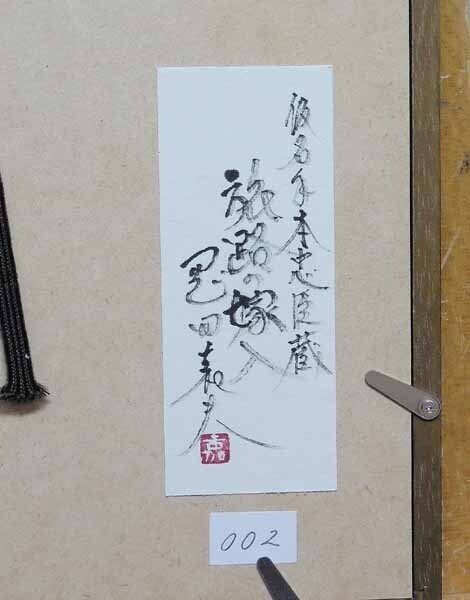 仮名手本忠臣蔵
旅路の嫁入
田嘉夫
嘉
002